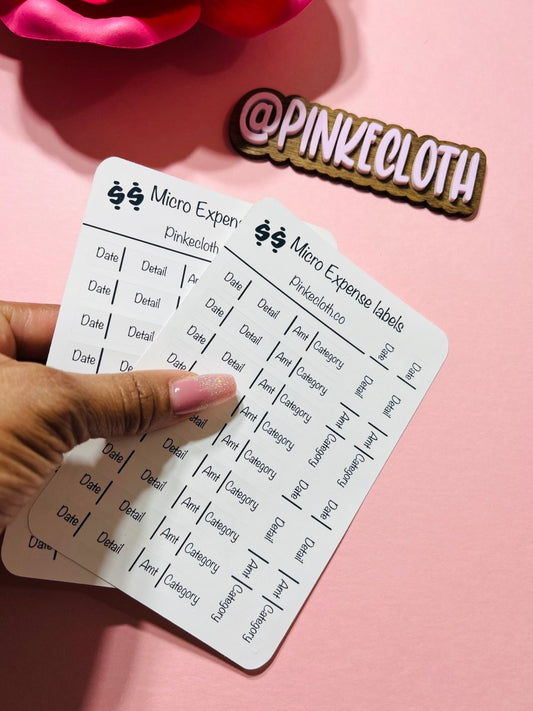 @PINKECLOTH
$$ Micro Expen
Pinkecloth
Date Detail
Date Detail
Date Detail
Date
Date
$$ Micro Expense labels
Pinkecloth.co
Date Detail Amt Category
Date Detail Amt Category
Date Detail Amt Category
Date Amt Category
Amt Category
Detail Amt Category
Date Detail Amt Category
Date Detail Amt Category
Date Detail Amt Category
Date Detail Amt Category
Date Detail Amt Category
Date Detail Amt Category
Date Detail Amt Category